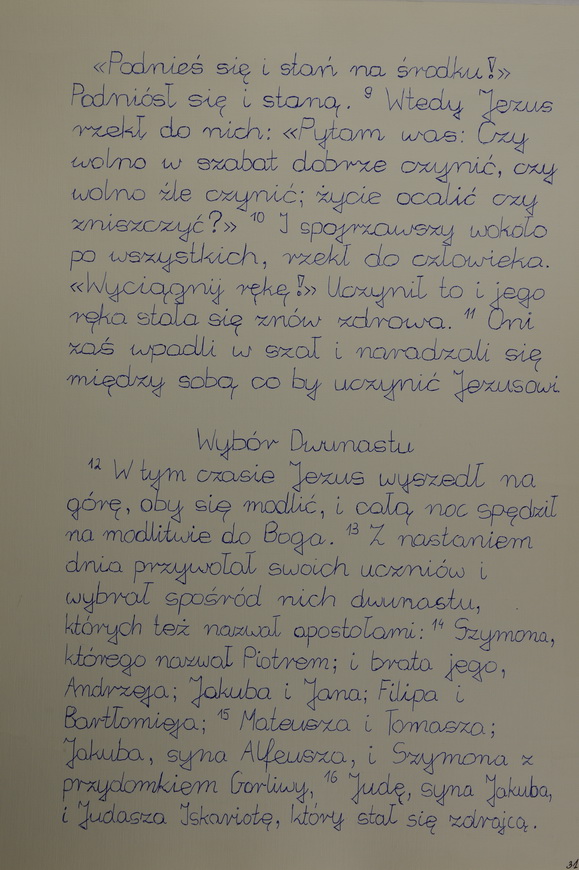 «Podnieś się i stań na środku!»
Podniósł się i staną. 9 Wtedy Jezus
rzekł do nich: «Pytam was: Czy
wolno w szabat dobrze czynić, czy
wolno źle czynić; życie ocalić czy
zniszczyć?» 10 I spojrzawszy wokoło
po wszystkich, rzekł do człowieka.
«Wyciągnij rękę!» Uczynił to i jego
ręka stała się znów zdrowa. 11 Oni
zaś wpadli w szał i naradzali się
między sobą co by uczynić Jezusowi
Wybór Dwunastu
12 W tym czasie Jezus wyszedł na
górę, aby się modlić, i całą noc spędził
na modlitwie do Boga. 13 Z nastaniem
dnia przywołał swoich uczniów i
wybrał spośród nich dwunastu,
których też nazwał apostołami: 14 Szymona,
którego nazwał Piotrem; i brata jego,
Andrzeja; Jakuba i Jana; Filipa i
Bartłomieja; 15 Mateusza i Tomasza;
Jakuba, syna Alfeusza, i Szymona z
przydomkiem Gorliwy, 16 Judę, syna Jakuba,
i Judasza Iskariotę, który stał się zdrajcą.
31